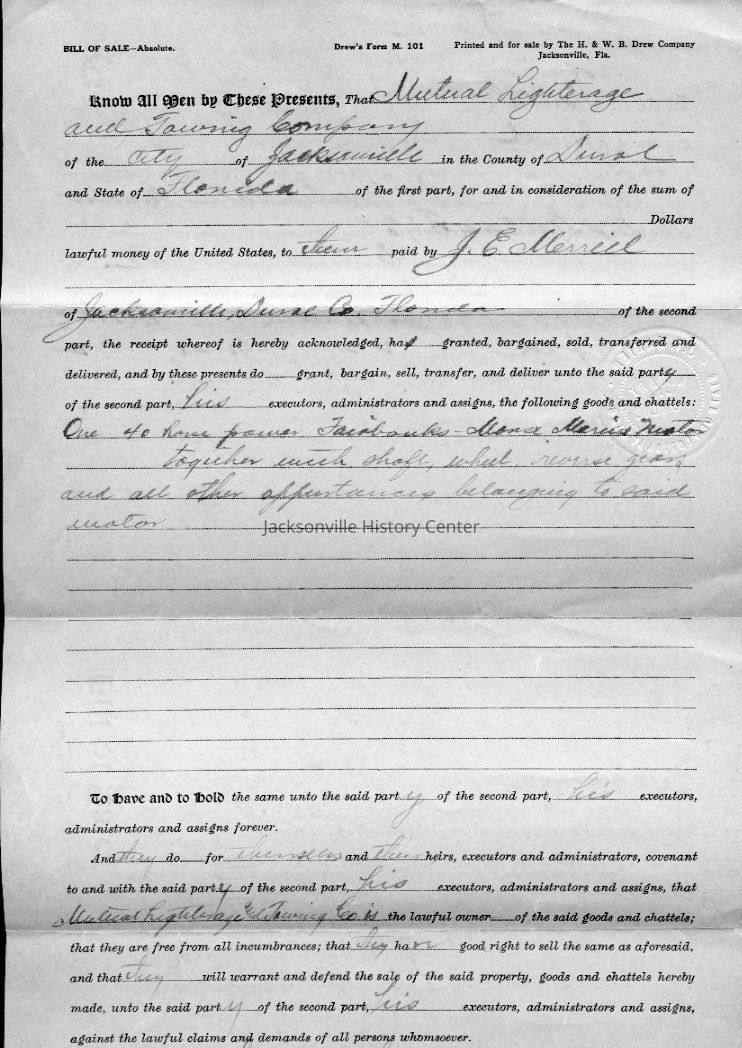 BILL OF SALE—Absolute. Drew's Form M. 101 Printed and for sale by The H. & W. B. Drew Company
Jacksonville, Fla.
Know All Men by These Presents, That Mutual Lighterage
and Towing Company
of the City of Jacksonville in the County of Duval
and State of Florida of the first part, for and in consideration of the sum of
Dollars
lawful money of the United States, to them paid by J. E. Merrill
of Jacksonville, Duval Co. Florida of the second
part, the receipt whereof is hereby acknowledged, ha granted, bargained, sold, transferred and
delivered, and by these presents do grant, bargain, sell, transfer, and deliver unto the said party
of the second part, his executors, administrators and assigns, the following goods and chattels:
One 40 horse power Fairbanks-Morse Motor
together with shaft, wheel reverse gear
and all other appurtances belonging to said
motor
Jacksonville History Center
To Have and to Hold the same unto the said party of the second part, his executors,
administrators and assigns forever.
And they do for themselves and their heirs, executors and administrators, covenant
to and with the said party of the second part, his executors, administrators and assigns, that
Mutual Lighterage & Towing Co is the lawful owner of the said goods and chattels;
that they are free from all incumbrances; that they have good right to sell the same as aforesaid,
and that they will warrant and defend the sale of the said property, goods and chattels hereby
made, unto the said party of the second part, his executors, administrators and assigns,
against the lawful claims and demands of all persons whomsoever.